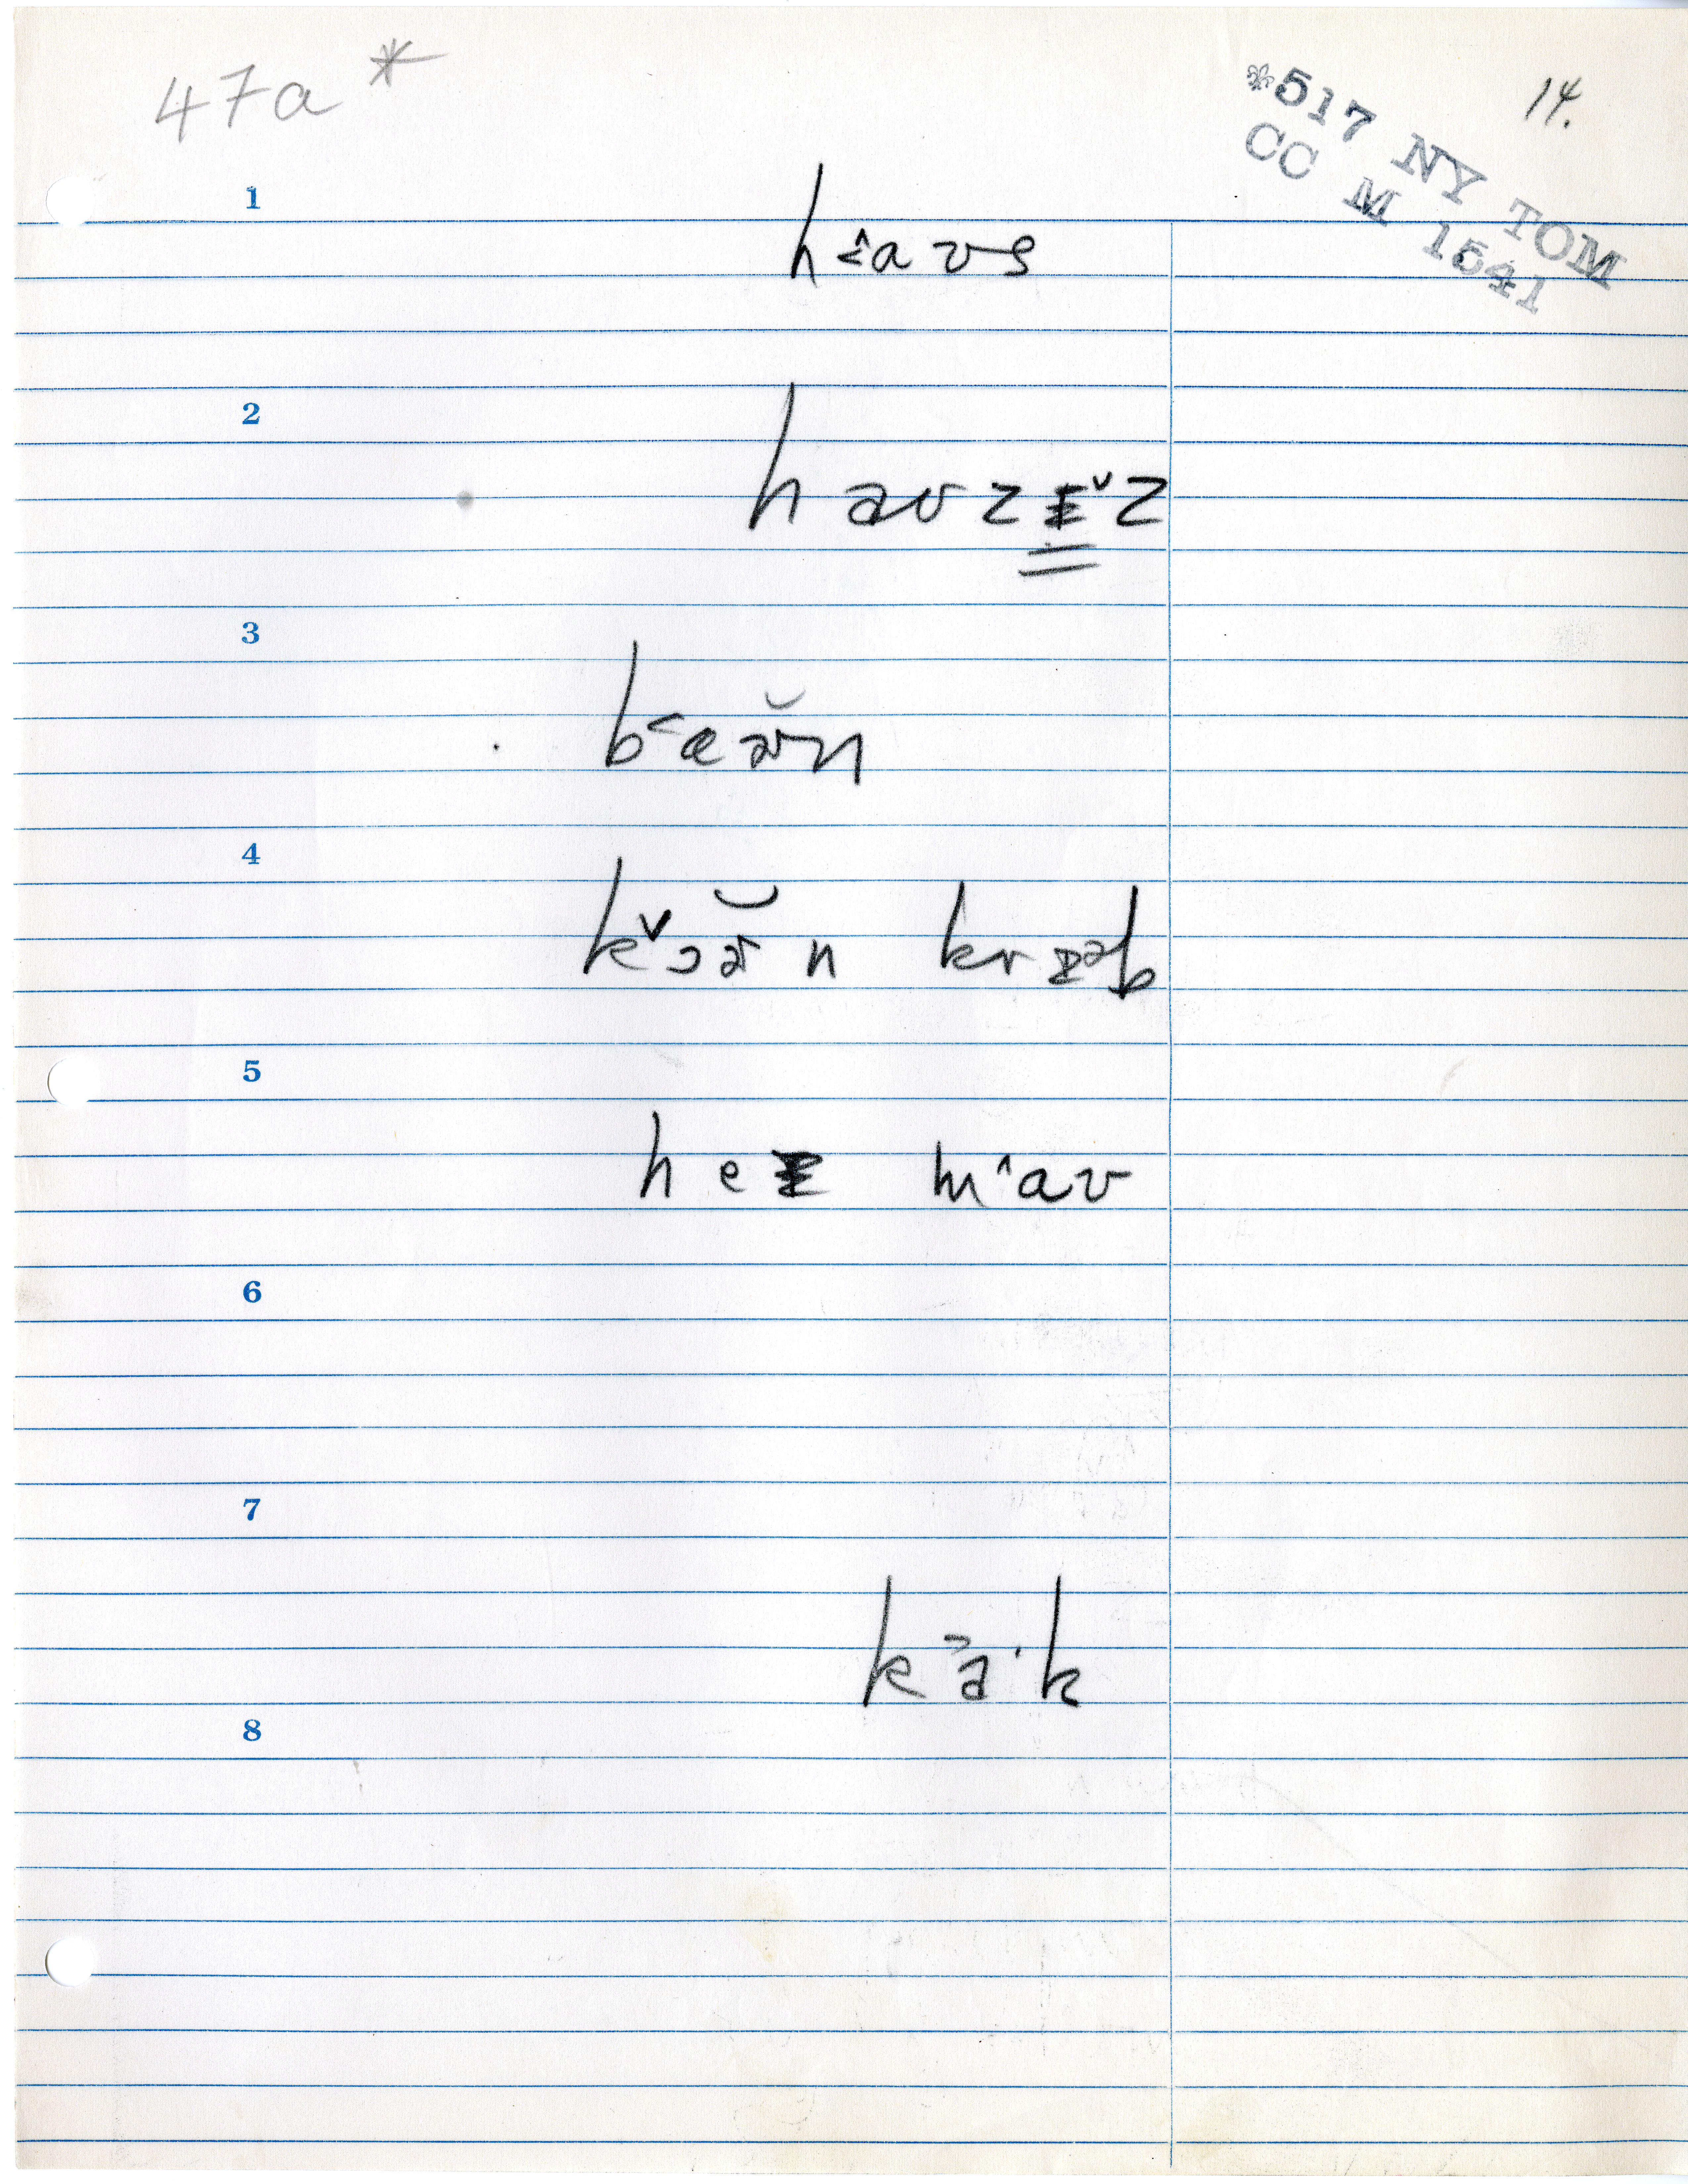 47a *
14.
*517 NY TOM
CC M 1541
1
h<^avs
2
havzɪˇz
3
b<æə̆n
4
kˇɔə̆n krɪəb
5
heɪ m^av
6
7
k>a·k
8